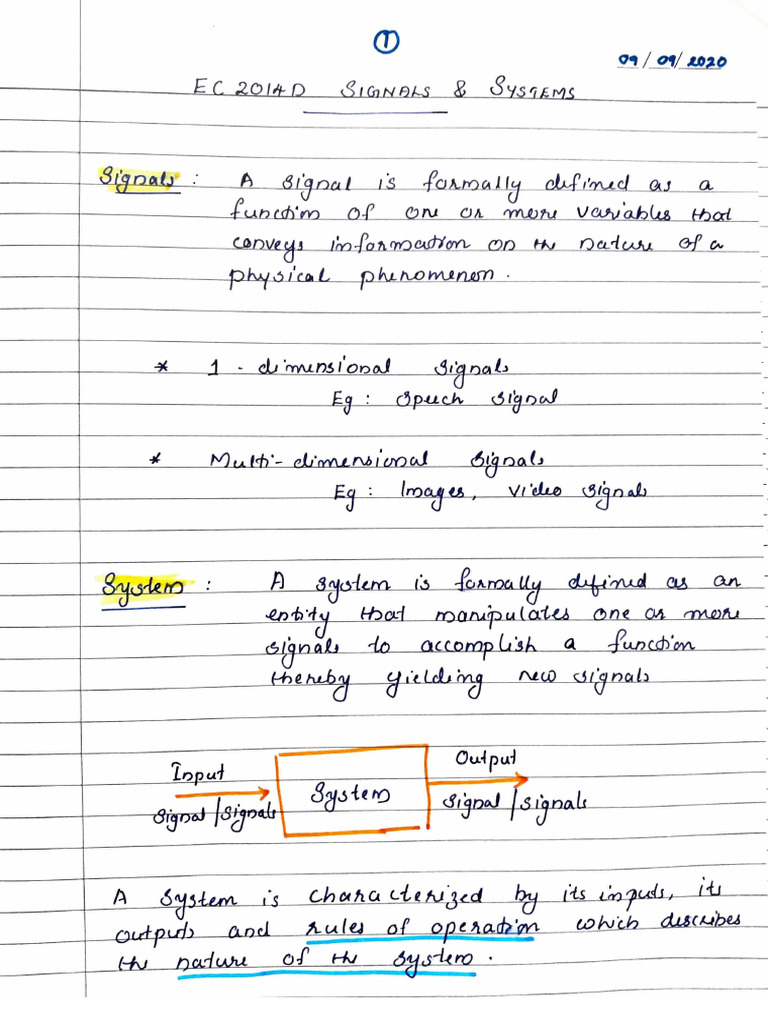 1
09/09/2020
EC2014D SIGNALS & SYSTEMS
Signals : A signal is formally defined as a
function of one or more variables that
conveys information on the nature of a
physical phenomenon.
* 1 - dimensional signals
Eg : Speech signal
* Multi-dimensional signals
Eg : Images, video signals
System : A system is formally defined as an
entity that manipulates one or more
signals to accomplish a function
thereby yielding new signals
Input
signal/signals
System
Output
signal/signals
A system is characterized by its inputs, its
outputs and rules of operation which describes
the nature of the system.